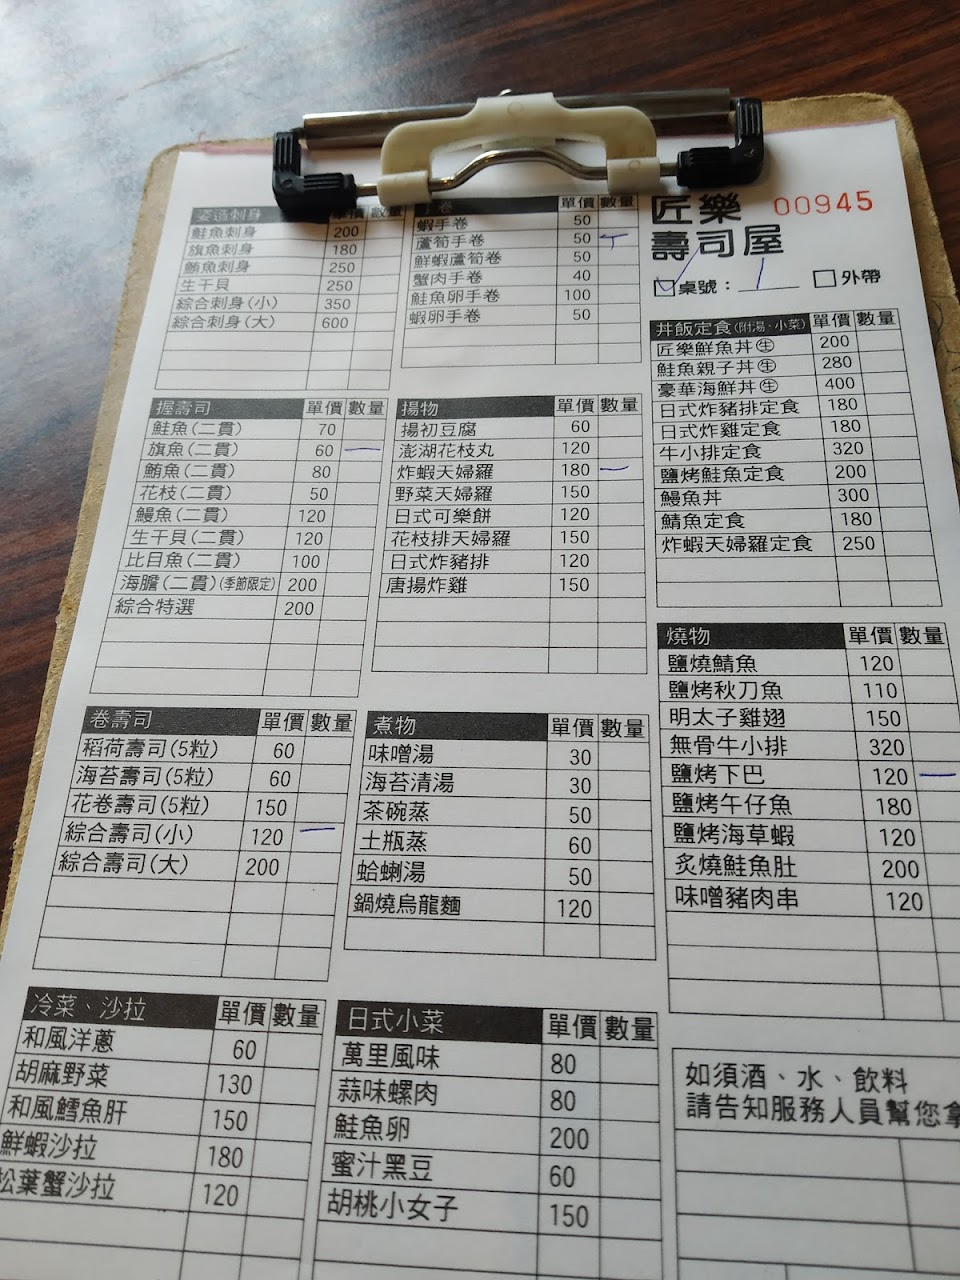 姿造刺身 單價 數量
鮭魚刺身 200
旗魚刺身 180
鮪魚刺身 250
生干貝 250
綜合刺身(小) 350
綜合刺身(大) 600
卷 單價 數量
蝦手卷 50
蘆筍手卷 50
鮮蝦蘆筍卷 50
蟹肉手卷 40
鮭魚卵手卷 100
蝦卵手卷 50
匠樂 00945
壽司屋
桌號: 1 外帶
丼飯定食(附湯、小菜) 單價 數量
匠樂鮮魚丼㊌生 200
鮭魚親子丼生 280
豪華海鮮丼生 400
日式炸豬排定食 180
日式炸雞定食 180
牛小排定食 320
鹽烤鮭魚定食 200
鰻魚丼 300
鯖魚定食 180
炸蝦天婦羅定食 250
握壽司 單價 數量
鮭魚(二貫) 70
旗魚(二貫) 60 一
鮪魚(二貫) 80
花枝(二貫) 50
鰻魚(二貫) 120
生干貝(二貫) 120
比目魚(二貫) 100
海膽(二貫)(季節限定) 200
綜合特選 200
揚物 單價 數量
揚初豆腐 60
澎湖花枝丸 120
炸蝦天婦羅 180 一
野菜天婦羅 150
日式可樂餅 120
花枝排天婦羅 150
日式炸豬排 120
唐揚炸雞 150
燒物 單價 數量
鹽燒鯖魚 120
鹽烤秋刀魚 110
明太子雞翅 150
無骨牛小排 320
鹽烤下巴 120 一
鹽烤午仔魚 180
鹽烤海草蝦 120
炙燒鮭魚肚 200
味噌豬肉串 120
卷壽司 單價 數量
稻荷壽司(5粒) 60
海苔壽司(5粒) 60
花卷壽司(5粒) 150
綜合壽司(小) 120 一
綜合壽司(大) 200
煮物 單價 數量
味噌湯 30
海苔清湯 30
茶碗蒸 50
土瓶蒸 60
蛤蜊湯 50
鍋燒烏龍麵 120
冷菜、沙拉 單價 數量
和風洋蔥 60
胡麻野菜 130
和風鱈魚肝 150
鮮蝦沙拉 180
松葉蟹沙拉 120
日式小菜 單價 數量
萬里風味 80
蒜味螺肉 80
鮭魚卵 200
蜜汁黑豆 60
胡桃小女子 150
如須酒、水、飲料
請告知服務人員幫您拿